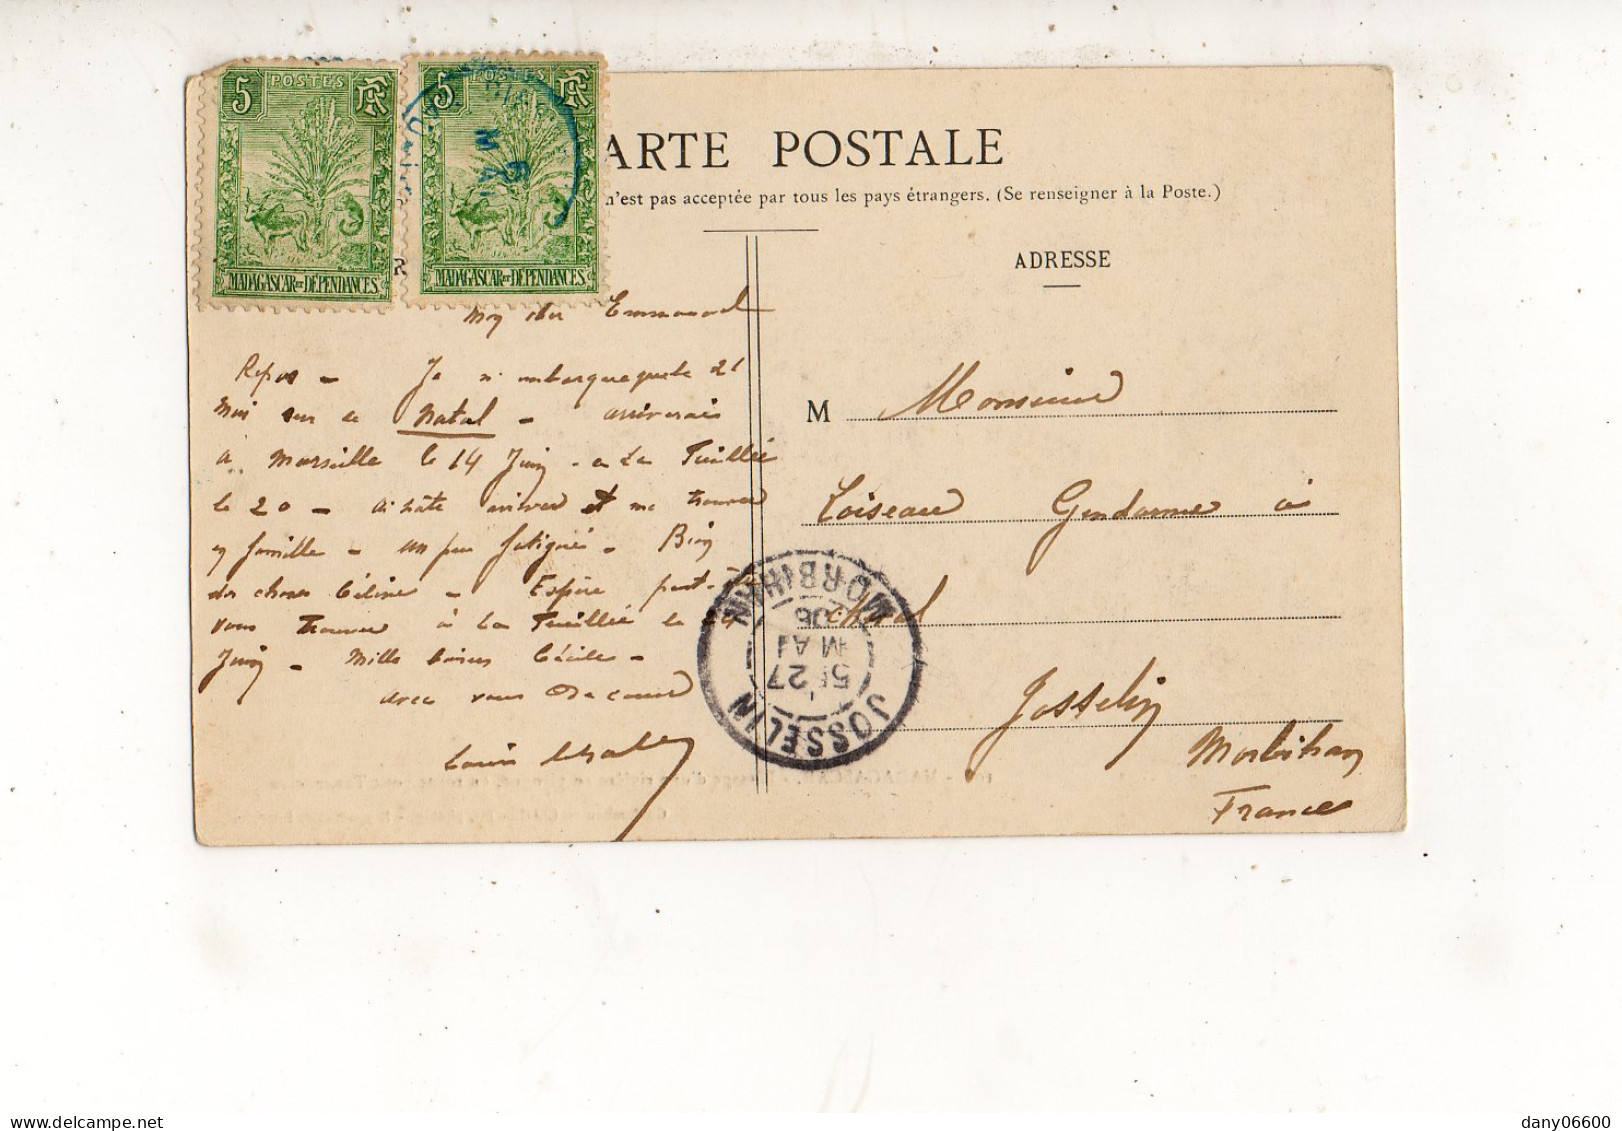 5 POSTES RF
MADAGASCAR ET DÉPENDANCES
5 POSTES RF
MADAGASCAR ET DÉPENDANCES
ARTE POSTALE
n'est pas acceptée par tous les pays étrangers. (Se renseigner à la Poste.)
R
ADRESSE
Mon cher Emmanuel
Repos - Je m'embarque le 21
Mai sur le Natal - arriverai
à Marseille le 14 Juin - à La Feuillée
le 20 - ai hâte arriver et me trouver
en famille - un peu fatigué - Bien
des choses Céline - Espère peut-être
vous trouver à La Feuillée le 24
Juin - Mille baisers Cécile -
avec vous de cœur
Louis
M Monsieur
Loiseau Gendarme à
cheval
Josselin
Morbihan
France
JOSSELIN
5E 27
MAI
06
MORBIHAN
dany06600